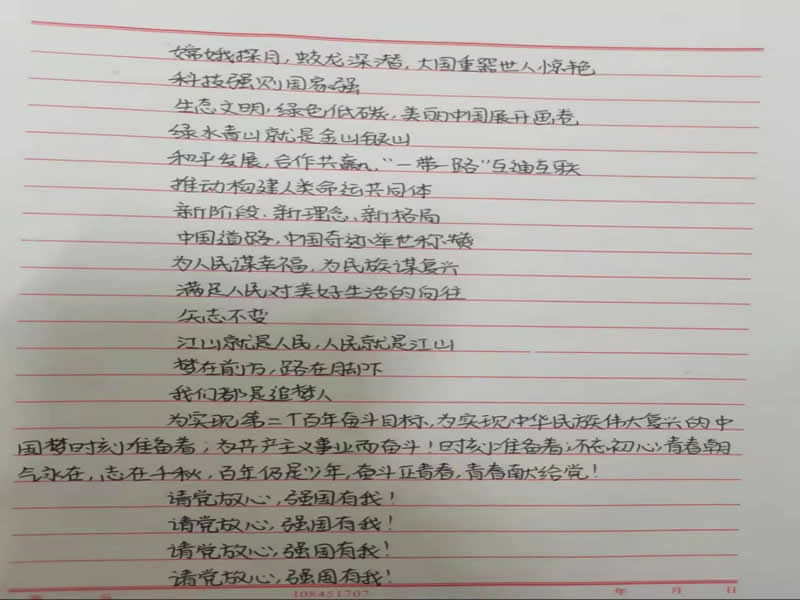 嫦娥探月，蛟龙深潜，大国重器世人惊艳
科技强则国家强
生态文明，绿色低碳，美丽中国展开画卷
绿水青山就是金山银山
和平发展，合作共赢，"一带一路"互通互联
推动构建人类命运共同体
新阶段、新理念、新格局
中国道路，中国奇迹举世称赞
为人民谋幸福，为民族谋复兴
满足人民对美好生活的向往
矢志不变
江山就是人民，人民就是江山
梦在前方，路在脚下
我们都是追梦人
为实现第二个百年奋斗目标，为实现中华民族伟大复兴的中
国梦时刻准备着；为共产主义事业而奋斗！时刻准备着；不忘初心，青春朝
气永在，志在千秋，百年仍是少年，奋斗正青春，青春献给党！
请党放心，强国有我！
请党放心，强国有我！
请党放心，强国有我！
请党放心，强国有我！
108451707 年 月 日